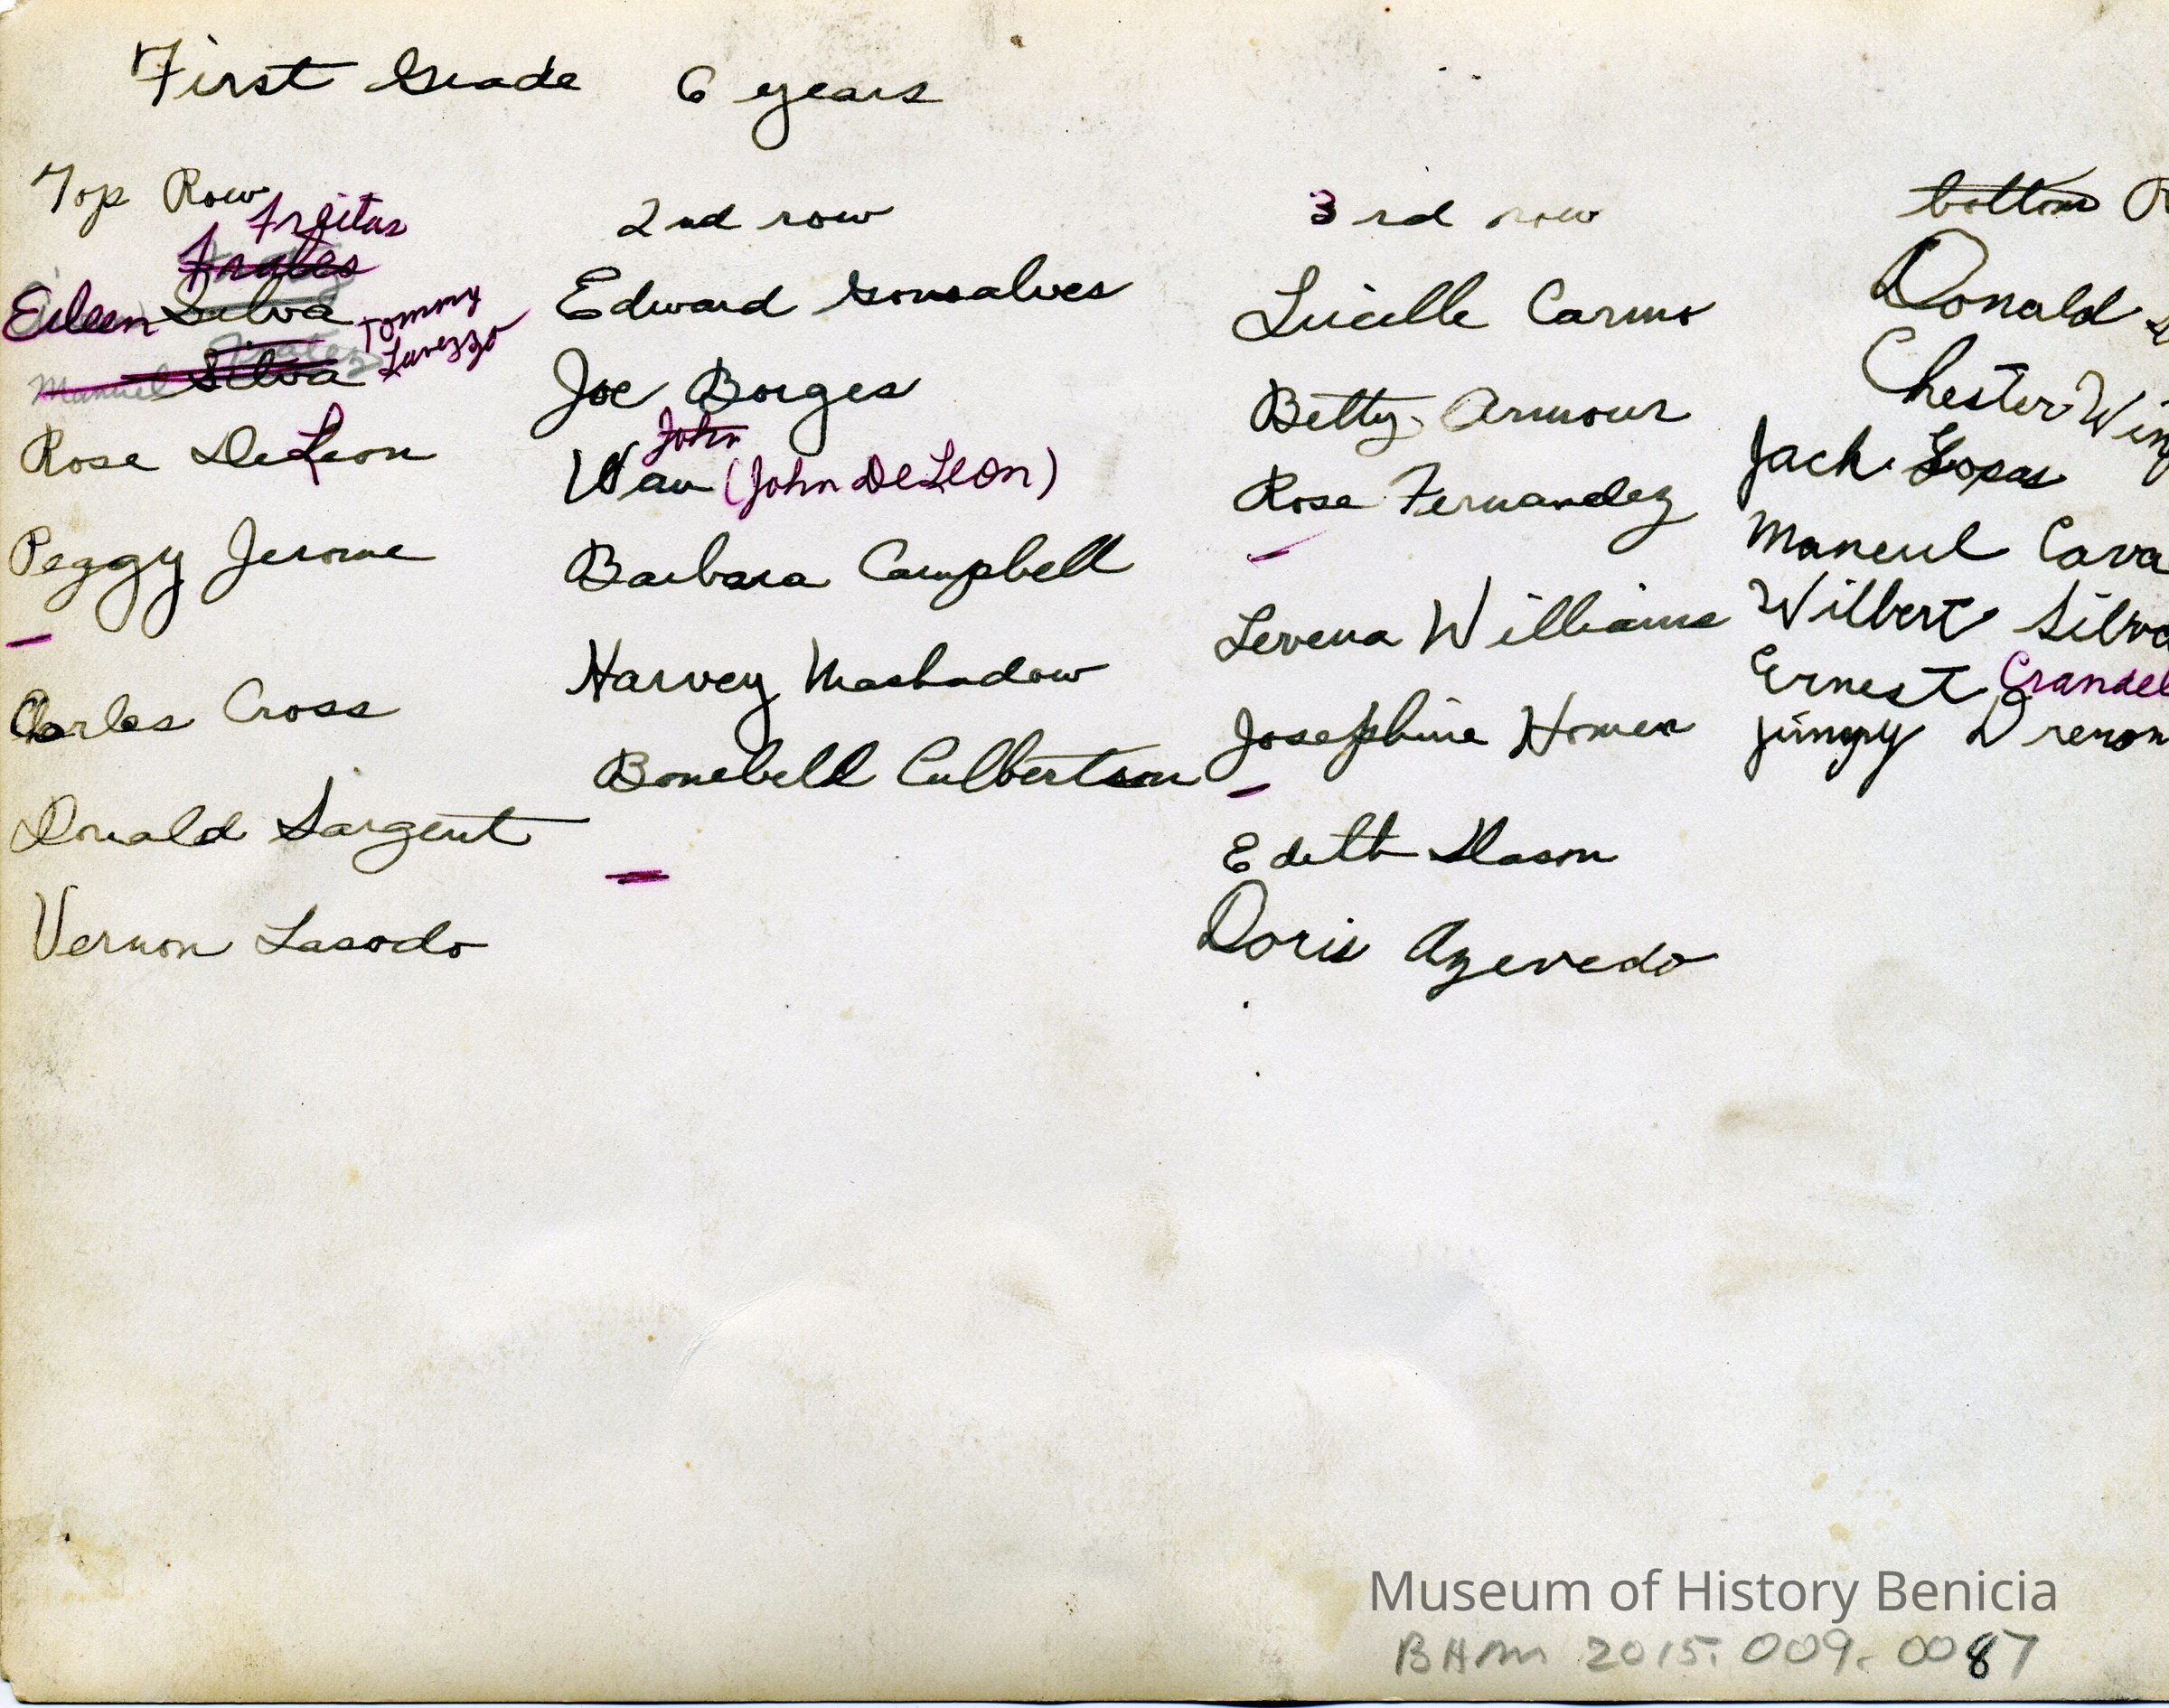 First Grade 6 years
Top Row
Freitas
Frates
Eileen Silva
Tommy
Lavezzo
Manuel Silva
Rose DeLeon
Peggy Jerome
Charles Cross
Donald Sargent
Vernon Lasodo
2nd row
Edward Gonsalves
Joe Borges
John
Wau (John DeLeon)
Barbara Campbell
Harvey Mashadow
Bonebell Culbertson
3rd row
Lucille Carmo
Betty Armour
Rose Fernandez
Levena Williams
Josephine Homen
Edith Mason
Doris Azevedo
bottom R
Donald
Chester Wing
Jack Lopas
Maneul Cava
Wilbert Silva
Ernest Crandel
Jimmy Drenon
Museum of History Benicia
BHM 2015.009.0087